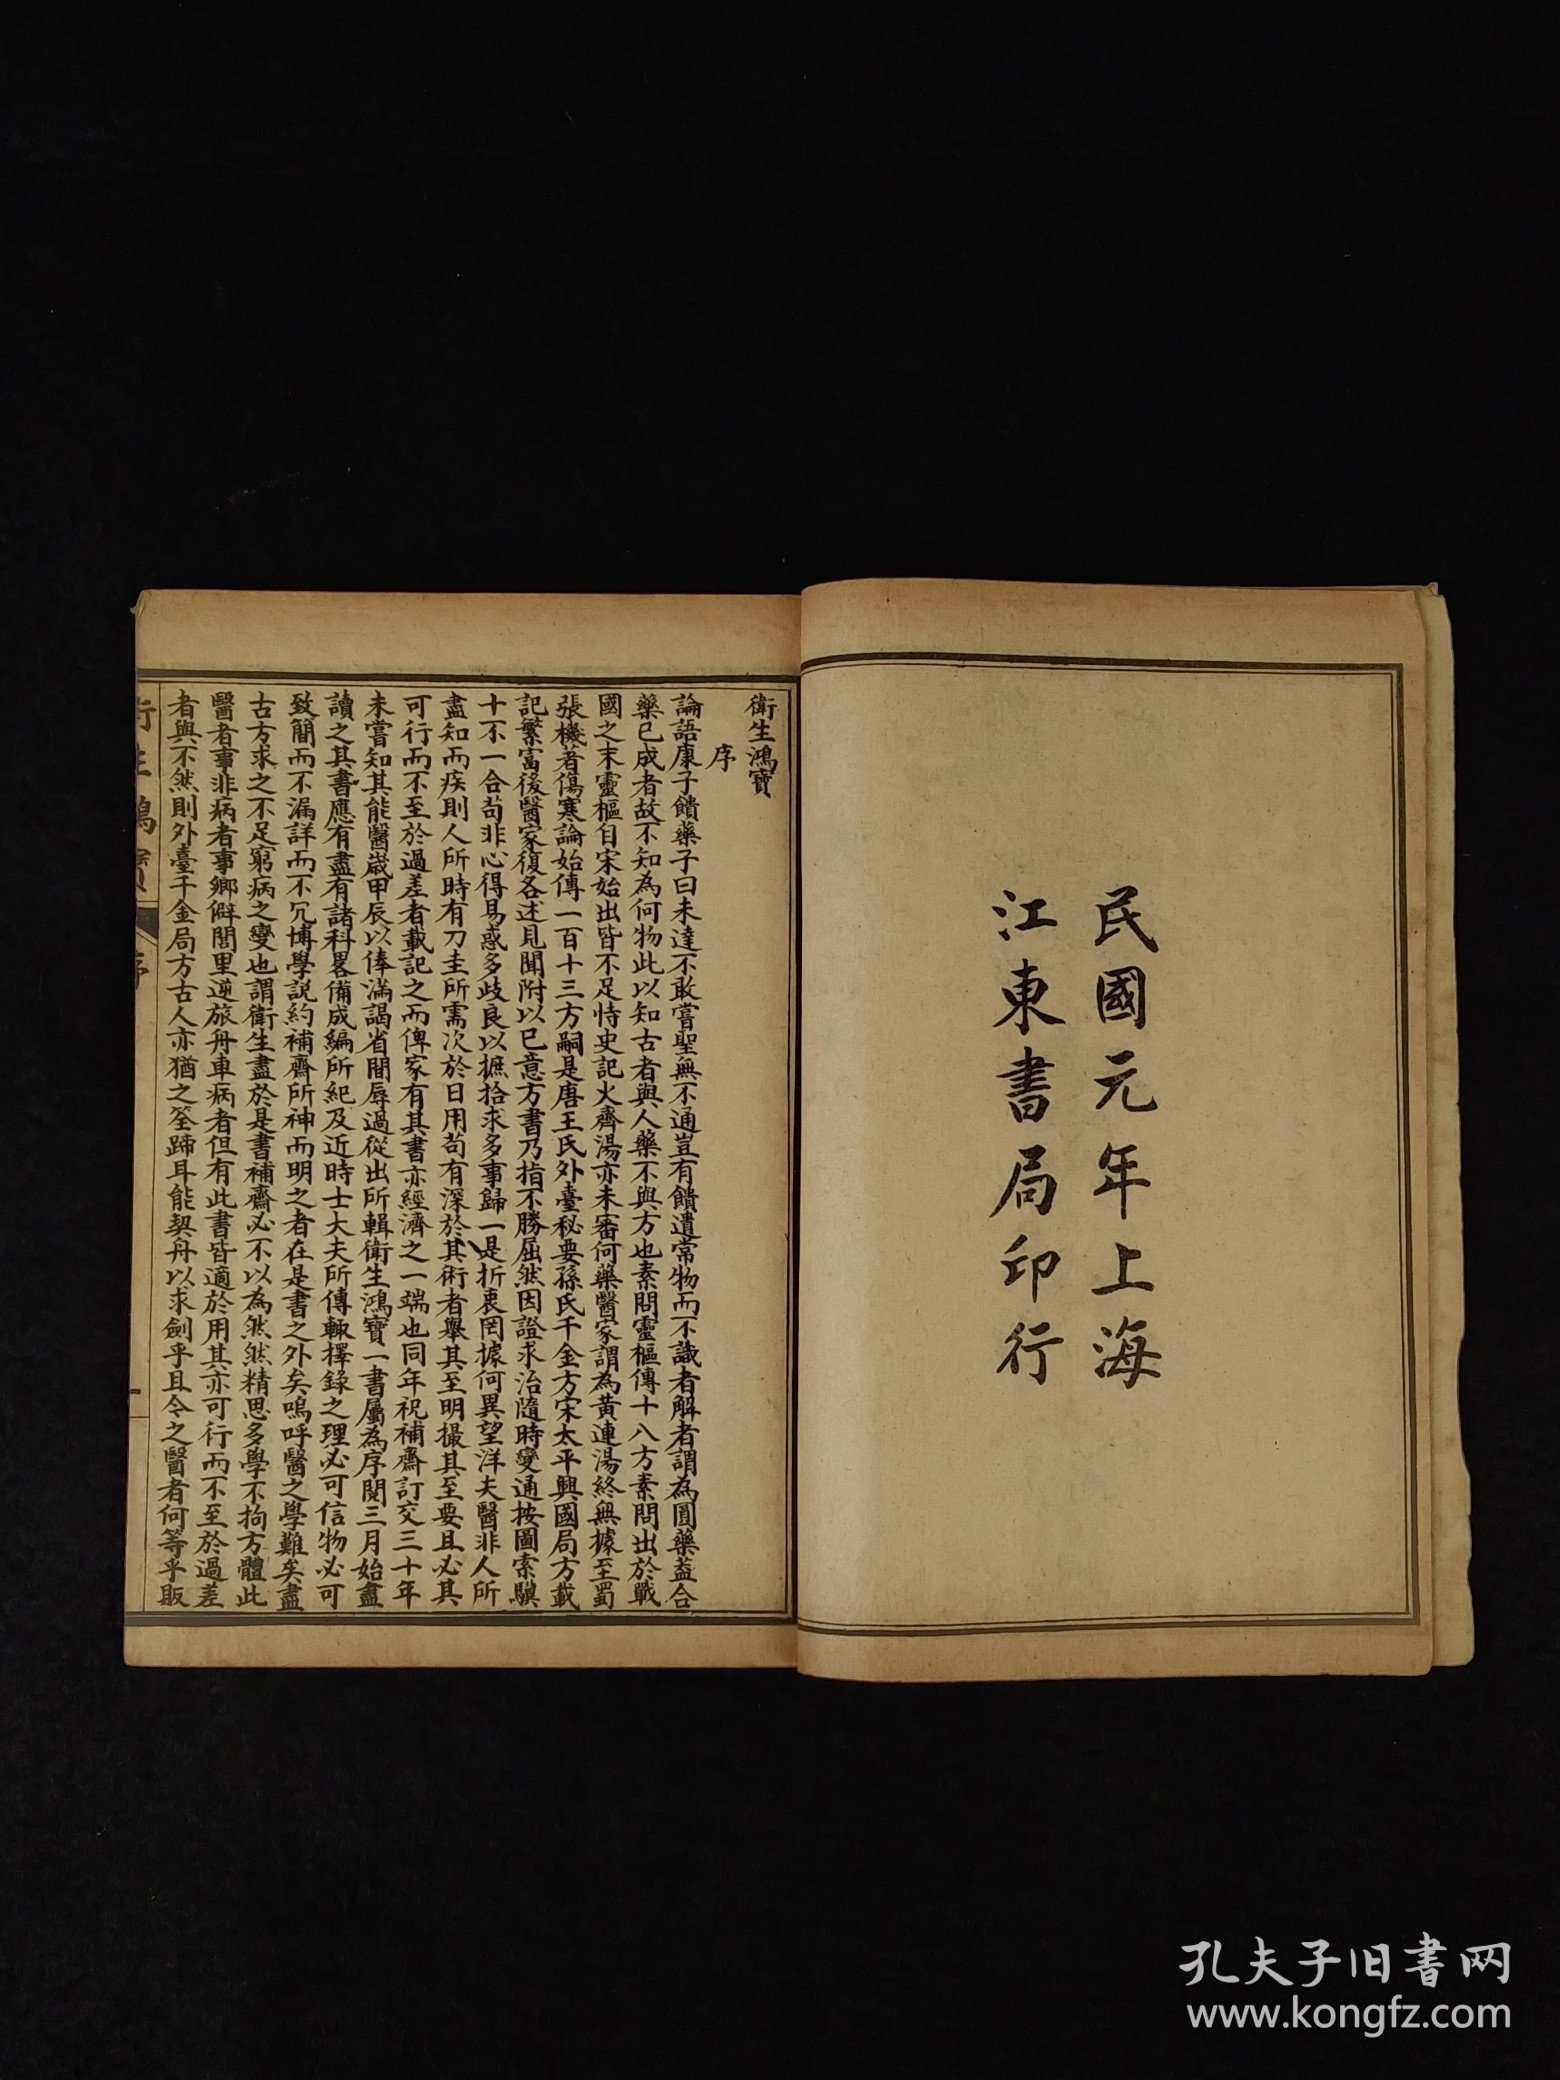 民國元年上海
江東書局印行
衛生鴻寶
序
論語康子饋藥子曰未達不敢嘗聖無不通豈有饋遺常物而不識者解者謂為圓藥蓋合
藥已成者故不知為何物此以知古者與人藥不與方也素問靈樞傳十八方素問出於戰
國之末靈樞自宋始出皆不足恃史記火齊湯亦未審何藥醫家謂為黃連湯終無據至蜀
張機著傷寒論始傳一百十三方嗣是唐王氏外臺秘要孫氏千金方宋太平興國局方載
記繁富後醫家復各述見聞附以己意方書乃指不勝屈然因證求治隨時變通按圖索驥
十不一合苟非心得易惑多歧良以摭拾求多事歸一是折衷罔據何異望洋夫醫非人所
盡知而疾則人所時有刀圭所需次於日用苟有深於其術者舉其至明撮其至要且必其
可行而不至於過差者載記之而俾家有其書亦經濟之一端也同年祝補齋訂交三十年
未嘗知其能醫歲甲辰以俸滿謁省間辱過從出所輯衛生鴻寶一書屬為序閱三月始盡
讀之其書應有盡有諸科畧備成編所紀及近時士大夫所傳輒擇錄之理必可信物必可
致簡而不漏詳而不冗博學說約補齋所神而明之者在是書之外矣嗚呼醫之學難矣盡
古方求之不足窮病之變也謂衛生盡於是書補齋必不以為然然精思多學不拘方體此
醫者事非病者事鄉僻閭里逆旅舟車病者但有此書皆適於用其亦可行而不至於過差
者與不然則外臺千金局方古人亦猶之筌蹄耳能契舟以求劍乎且今之醫者何等乎販
衛生鴻寶
序
一
孔夫子旧书网
www.kongfz.com